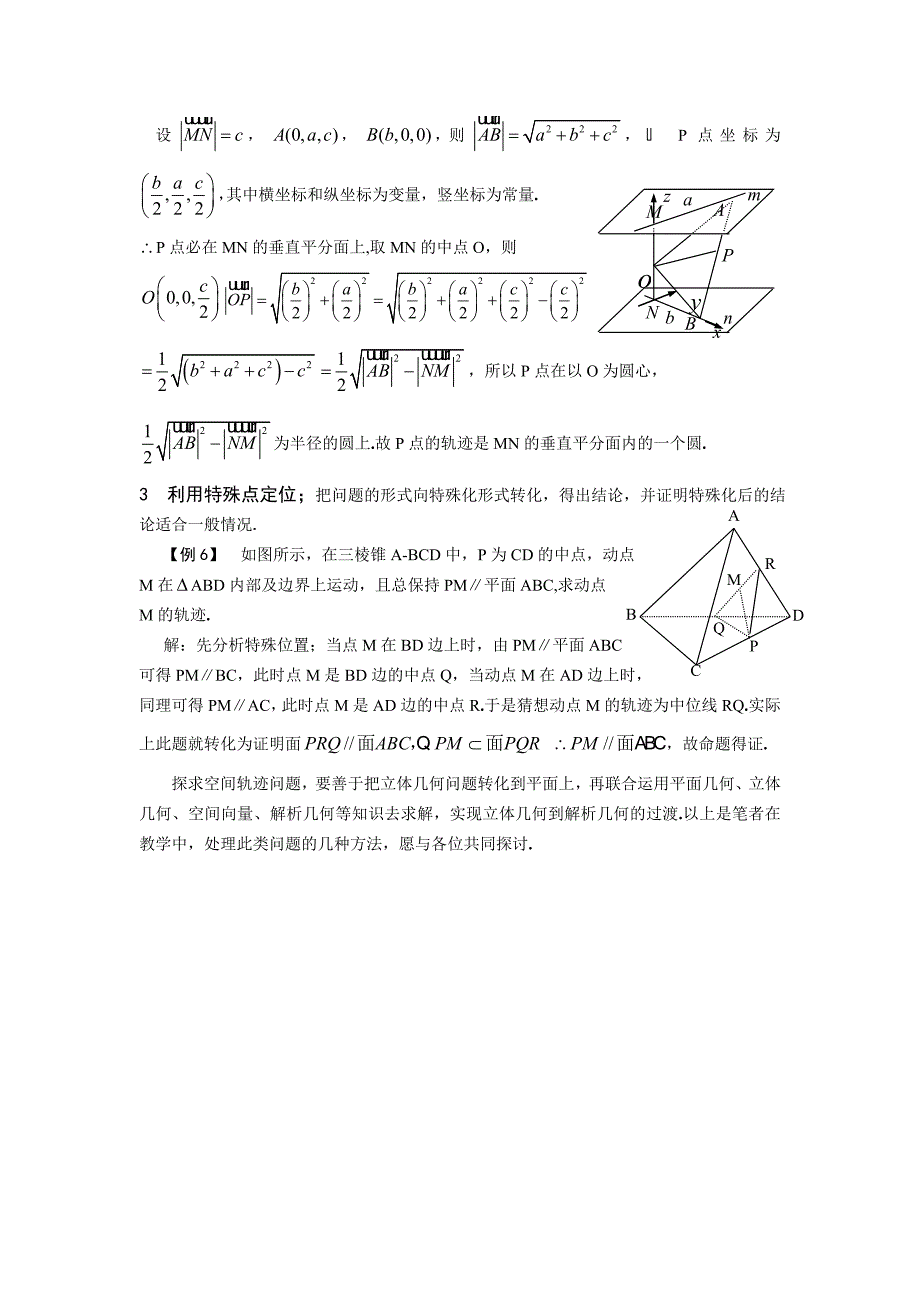 设 |MN| = c, A(0,a,c), B(b,0,0),则 |AB| = √(a²+b²+c²), P点坐标为
(b/2, a/2, c/2),其中横坐标和纵坐标为变量，竖坐标为常量.
∴P点必在MN的垂直平分面上,取MN的中点O，则
O(0,0,c/2) |OP| = √((b/2)²+(a/2)²) = √((b/2)²+(a/2)²+(c/2)²−(c/2)²)
= 1/2 √((b²+a²+c²)−c²) = 1/2 √(|AB|²−|NM|²)，所以P点在以O为圆心，
1/2 √(|AB|²−|NM|²) 为半径的圆上.故P点的轨迹是MN的垂直平分面内的一个圆.
z
a
m
M
A
P
O
y
N
b
B
n
x
3 利用特殊点定位；把问题的形式向特殊化形式转化，得出结论，并证明特殊化后的结
论适合一般情况.
【例6】 如图所示，在三棱锥A-BCD中，P为CD的中点，动点
M在ΔABD内部及边界上运动，且总保持PM∥平面ABC,求动点
M的轨迹.
A
R
M
B
D
Q
P
C
解：先分析特殊位置；当点M在BD边上时，由PM∥平面ABC
可得PM∥BC，此时点M是BD边的中点Q，当动点M在AD边上时，
同理可得PM∥AC，此时点M是AD边的中点R.于是猜想动点M的轨迹为中位线RQ.实际
上此题就转化为证明面PRQ//面ABC,Q PM⊂面PQR ∴PM//面ABC，故命题得证.
探求空间轨迹问题，要善于把立体几何问题转化到平面上，再联合运用平面几何、立体
几何、空间向量、解析几何等知识去求解，实现立体几何到解析几何的过渡.以上是笔者在
教学中，处理此类问题的几种方法，愿与各位共同探讨.